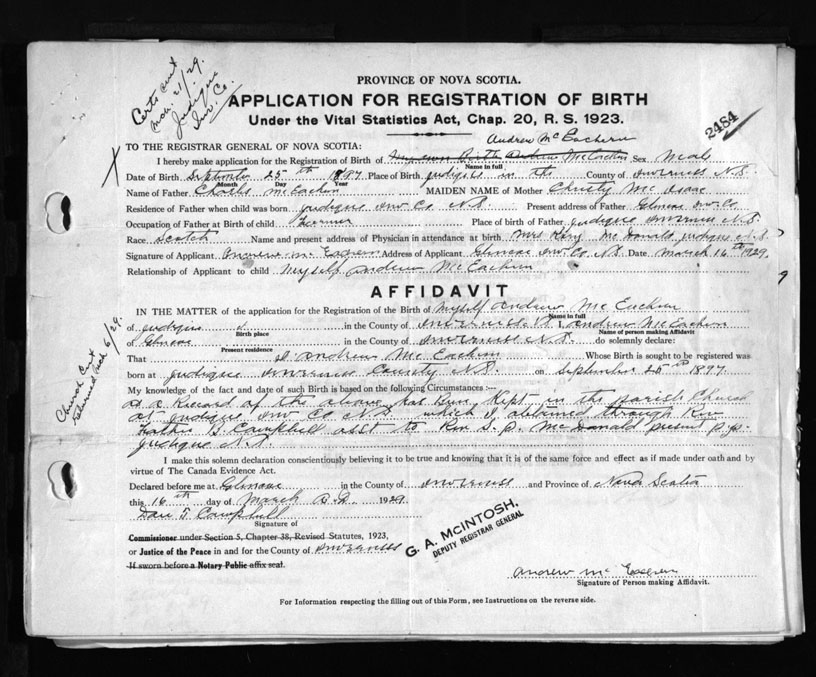 Certs sent
Mch. 21/29.
Judique
Inv. Co.
PROVINCE OF NOVA SCOTIA.
APPLICATION FOR REGISTRATION OF BIRTH
Under the Vital Statistics Act, Chap. 20, R. S. 1923.
2484
TO THE REGISTRAR GENERAL OF NOVA SCOTIA:
Andrew McEachern
I hereby make application for the Registration of Birth of Andrew McEachin Sex Male
Name in full
Date of Birth 25th 1897 Place of Birth Judique in the County of Inverness N.S.
Month Day Year
Name of Father Charles McEachin MAIDEN NAME of Mother Christy McIsaac
Residence of Father when child was born Judique Inv Co N.S. Present address of Father Glencoe Inv Co
Occupation of Father at Birth of child Farmer Place of birth of Father Judique Inverness N.S.
Race Scotch Name and present address of Physician in attendance at birth Mrs McDonald Judique N.S.
Signature of Applicant Andrew McEachern Address of Applicant Glencoe Inv Co N.S. Date March 16th 1929
Relationship of Applicant to child Myself Andrew McEachern
AFFIDAVIT
IN THE MATTER of the application for the Registration of the Birth of Myself Andrew McEachern
Name in full
of Judique in the County of Inverness N.S. I, Andrew McEachern
Birth place Name of person making Affidavit
of Glencoe in the County of Inverness N.S. do solemnly declare:
Present residence
That I Andrew McEachern Whose Birth is sought to be registered was
born at Judique Inverness County N.S. on September 25th 1897
My knowledge of the fact and date of such Birth is based on the following Circumstances :—
As a Record of the above has been Kept in the parish Church
at Judique Inv Co N.S. which I obtained through Rev
Father Campbell asst to Rev S. P. McDonald present p.p.
Judique N.S.
Church Cert
returned Mch 6/29.
I make this solemn declaration conscientiously believing it to be true and knowing that it is of the same force and effect as if made under oath and by
virtue of The Canada Evidence Act.
Declared before me at Glencoe in the County of Inverness and Province of Nova Scotia
this 16th day of March A.D. 1929
Dan T Campbell
Signature of
Commissioner under Section 5, Chapter 38, Revised Statutes, 1923,
or Justice of the Peace in and for the County of Inverness
If sworn before a Notary Public affix seal.
G. A. McINTOSH,
DEPUTY REGISTRAR GENERAL
Andrew McEachern
Signature of Person making Affidavit.
For Information respecting the filling out of this Form, see Instructions on the reverse side.